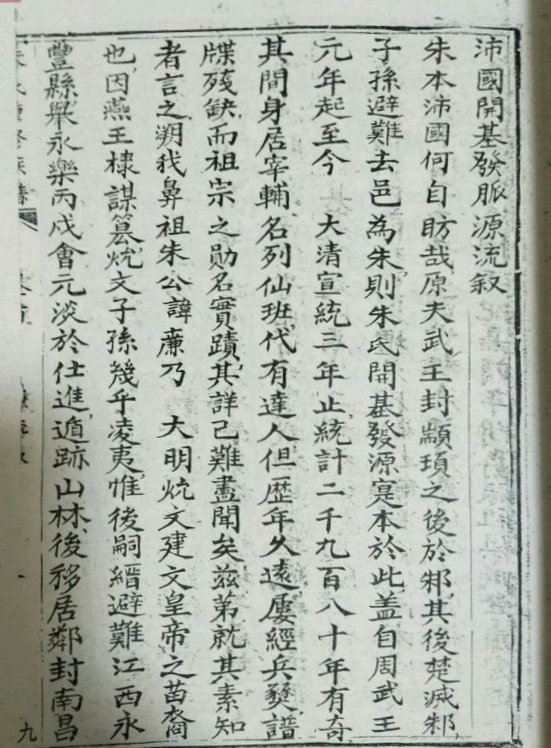 沛國開基發脈源流叙
朱本沛國何自昉哉原夫武王封顓頊之後於邾其後楚滅邾
子孫避難去邑為朱則朱氏開基發源寔本於此盖自周武王
元年起至今 大清宣統三年止統計二千九百八十年有奇
其間身居宰輔名列仙班代有達人但歷年久遠屢經兵燹譜
牒殘缺而祖宗之勛名實蹟其詳已難盡聞矣茲第就其素知
者言之朔我鼻祖朱公諱㢘乃 大明炕文建文皇帝之苗裔
也因燕王棣謀篡炕文子孫幾乎凌夷惟後嗣縉避難江西永
豐縣舉永樂丙戌會元淡於仕進遁跡山林後移居鄰封南昌
九